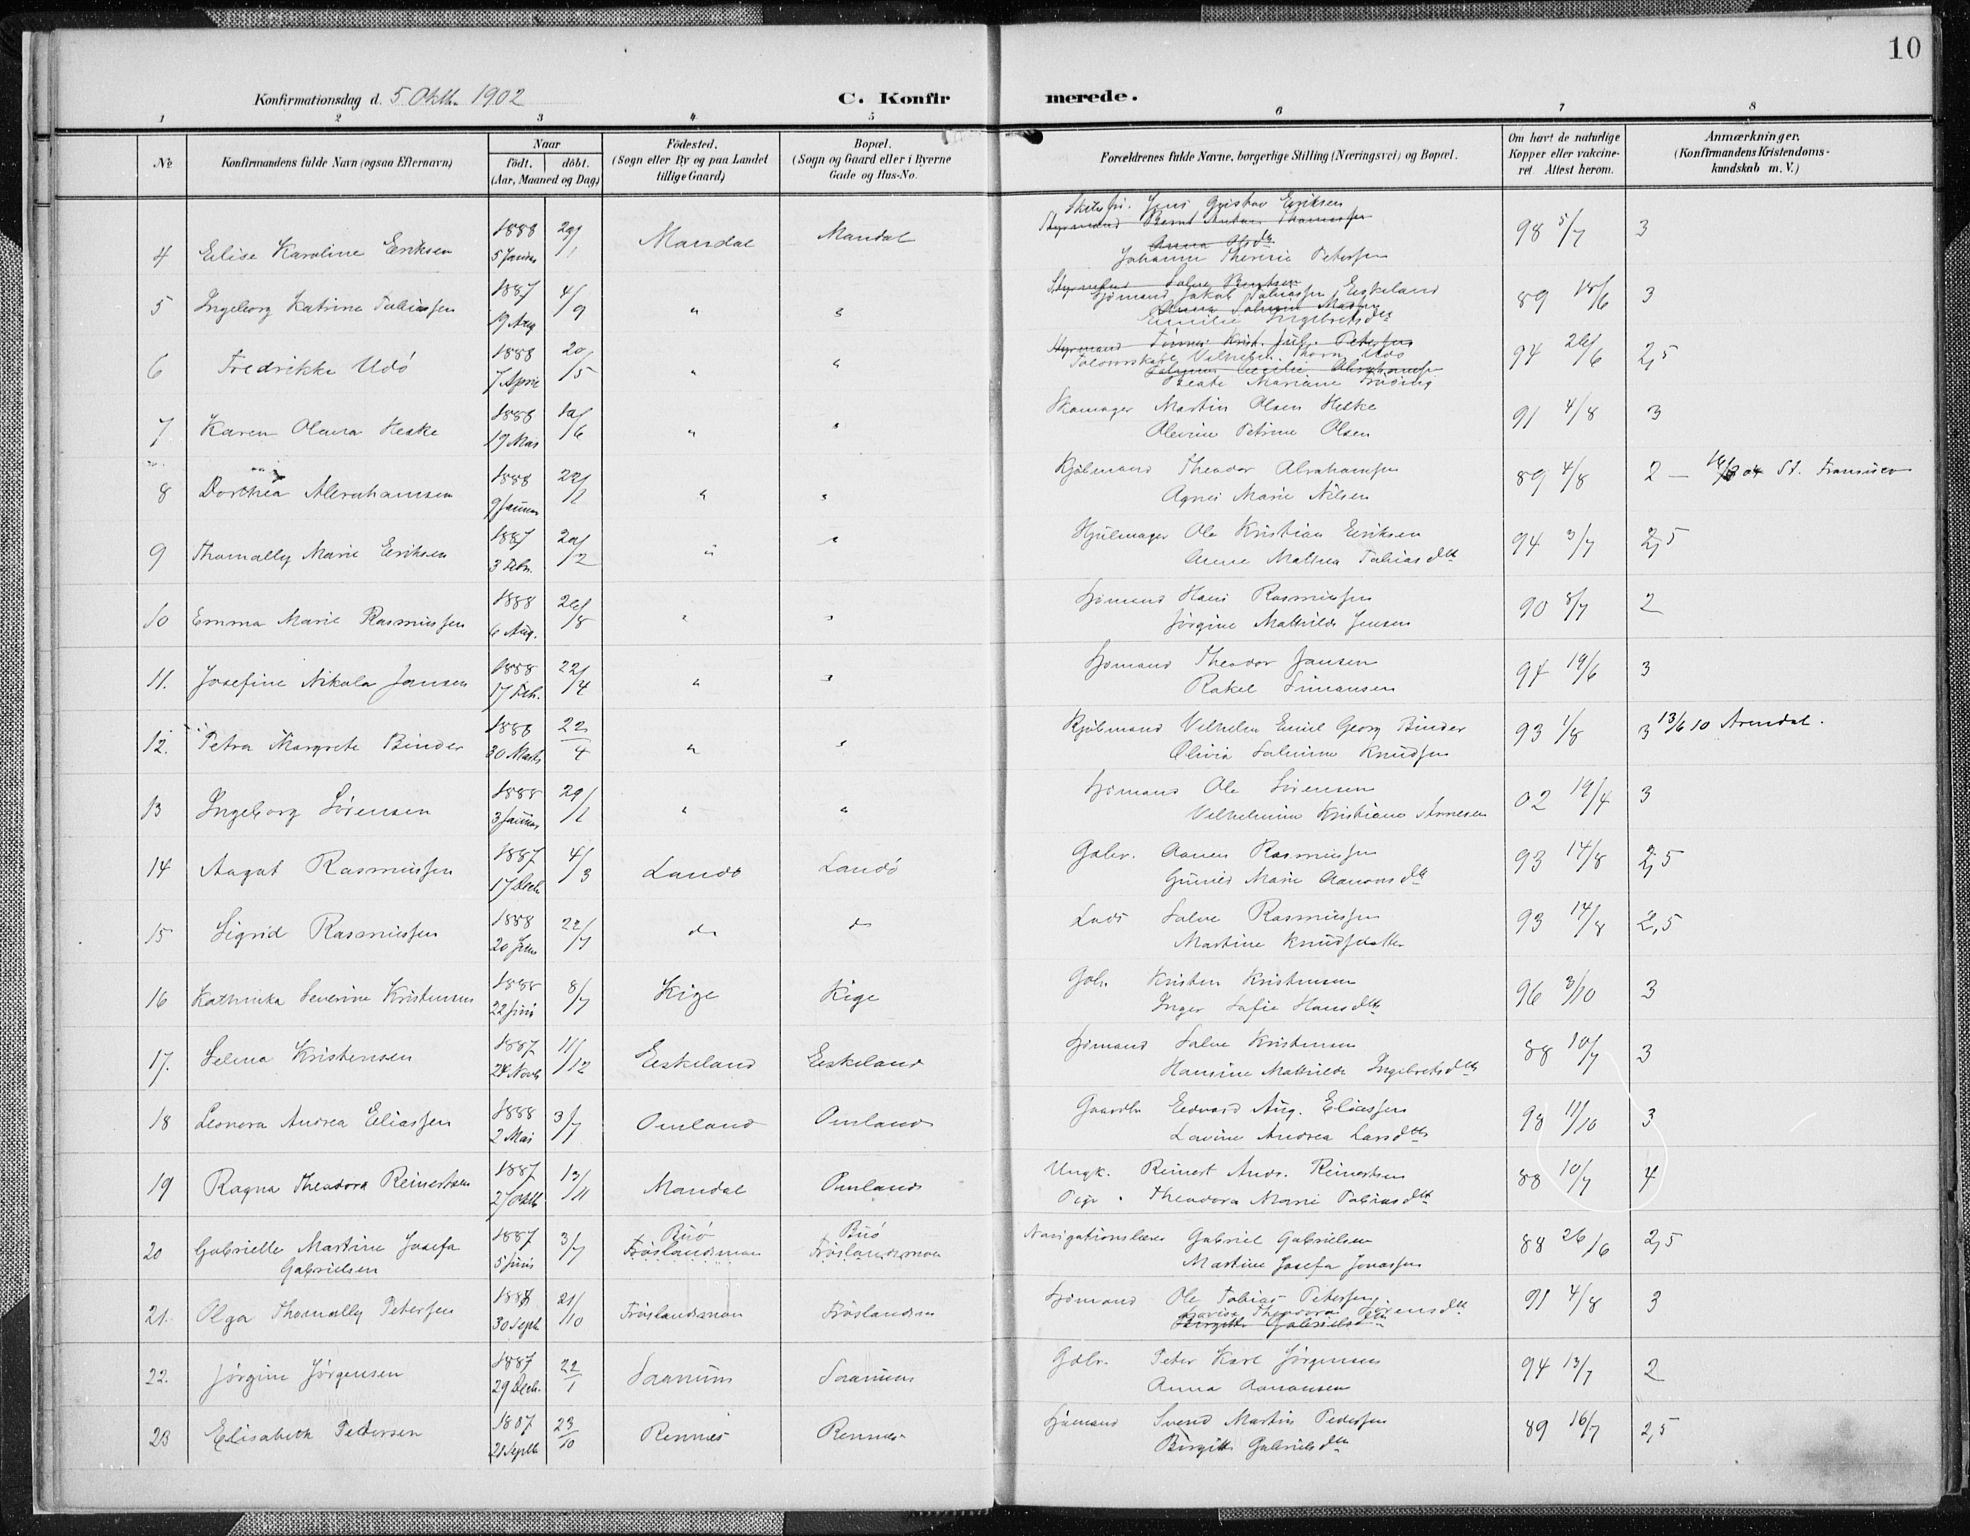 10
Konfirmationsdag d. 5 Oktbr. 1902 C. Konfir merede.
1 2 3 4 5 6 7 8
No Konfirmandens fulde Navn (ogsaa Efternavn) Naar født. døbt. (Aar, Maaned og Dag) Fødested. (Sogn eller By og paa Landet tillige Gaard) Bopæl. (Sogn og Gaard eller i Byerne Gade og Hus-No. Forældrenes fulde Navne, borgerlige Stilling (Næringsvei) og Bopæl. Om havt de naturlige Kopper eller vakcineret. Attest herom. Anmærkninger. (Konfirmandens Kristendomskundskab m. V.)
Jens Gustav Eriksen
Styrmand Bernt Anton Thomassen
4 Elise Karoline Eriksen 1888 5 Januar 29/1 Mandal Mandal Anna Olsdtr 98 5/7 3
Johanne Therese Petersen
Styrmand Salve Berntsen
5 Ingeborg Katrine Tobiassen 1887 19 Aug 4/9 " " Sjømand Jakob Tobiassen, Eiskeland 89 18/6 3
Emilie Ingebretsdtr
Styrmand Tønnes Krist. Petersen
6 Fredrikke Udø 1888 7 April 20/5 " " Vilhelm Thorn Udø 94 26/6 2,5
Cecilie Abrahamsen
Beate Mariane
7 Karen Olava Heske 1888 19 Mars 10/6 " " Skomager Martin Olsen Heske 91 4/8 3
Olevine Petrine Olsen
8 Dorthea Abrahamsen 1888 9 Januar 22/1 " " Kjøbmand Theodor Abrahamsen 89 4/8 2 – 04 St. Fransisco
Agnes Marie Nilsen
9 Thomally Marie Eriksen 1887 3 Febr. 20/2 " " Hjulmager Ole Kristian Eriksen 94 3/7 2,5
Anne Mathea Tobiasdtr
10 Emma Marie Rasmussen 1888 6 Aug. 26/8 " " Sjømand Hans Rasmussen 90 8/7 2
Jørgine Mathilde Jensen
11. Josefine Nikola Jansen 1888 17 Feb. 22/4 " " Sjømand Theodor Jansen 94 19/6 3
Rakel Simonsen
12. Petra Margrete Binder 1888 30 Marts 22/4 " " Kjøbmand Vilhelm Emil Georg Binder 93 1/8 3 13/6 10 Arendal.
Olivia Salmine Knudsen
13 Ingeborg Sørensen 1888 3 Januar 29/1 " " Sjømand Ole Sørensen 02 19/4 3
Vilhelmine Kristiane Annesen
14 Aagot Rasmussen 1887 17 Decb. 4/3 Landø Landø Gabr. Aanen Rasmussen 93 14/8 2,5
Gunild Marie Aanonsdtr
15 Sigrid Rasmussen 1888 20 Juni 22/7 do do Lods Salve Rasmussen 93 14/8 2,5
Martine Knudsdatter
16 Kathinka Severine Kristensen 1888 22 Juni 8/7 Kige Kige Gabr. Kristen Kristensen 96 3/10 3
Inger Sofie Hansdtr
17. Selma Kristensen 1887 24 Novb 11/12 Eiskeland Eiskeland Sjømand Salve Kristensen 88 10/7 3
Hansine Mathilde Ingebretsdtr
18 Leonora Andrea Eliassen 1888 2 Mai 3/7 Omland Omland Gaardbr Edvard Aug. Eliassen 98 11/10 3
Lovine Andrea Larsdtr
19 Ragna Theodora Reinertsen 1887 27 Oktb 13/11 Mandal Omland Ungk. Reinert Andr. Reinertsen 88 10/7 4
Pige Theodora Marie Tobiasdtr
20 Gabrielle Martine Josefa Gabrielsen 1887 5 Juni 3/7 Buø Frøslandsmon Buø Frøslandsmon Navigationslærer Gabriel Gabrielsen 88 26/6 2,5
Martine Josefa Jonassen
21. Olga Thomally Petersen 188 30 Septb 21/10 Frøslandsmon Frøslandsm Sjømand Ole Tobias Petersen 91 4/8 3
Lovise Theodora Sørensdtr
Birgitte Gabrielsdtr
22. Jørgine Jørgensen 1887 29 Decb. 22/1 Saanum Saanum Gdbr. Peter Karl Jørgensen 94 13/7 2
Anna Aanonsen
23 Elisabeth Pedersen 1887 21 Septb 23/10 Rennes Rennes Sjømand Svend Martin Pedersen 89 16/7 2,5
Birgitte Gabrielsdtr